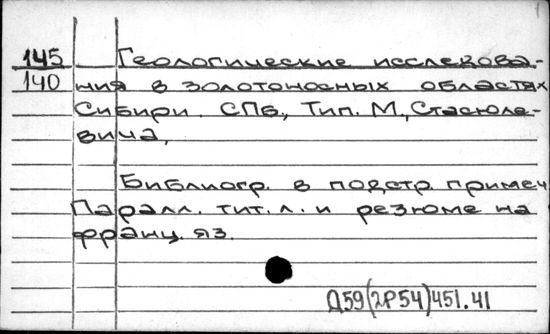 145 Геологические исследова-
140 ния в золотоносных областях
Сибири. СПб, Тип. М. Стасюле-
вича,
Библиогр. в подстр. примеч
Паралл. тит. л. и резюме на
франц. яз.
Д59(2Р54)451.41